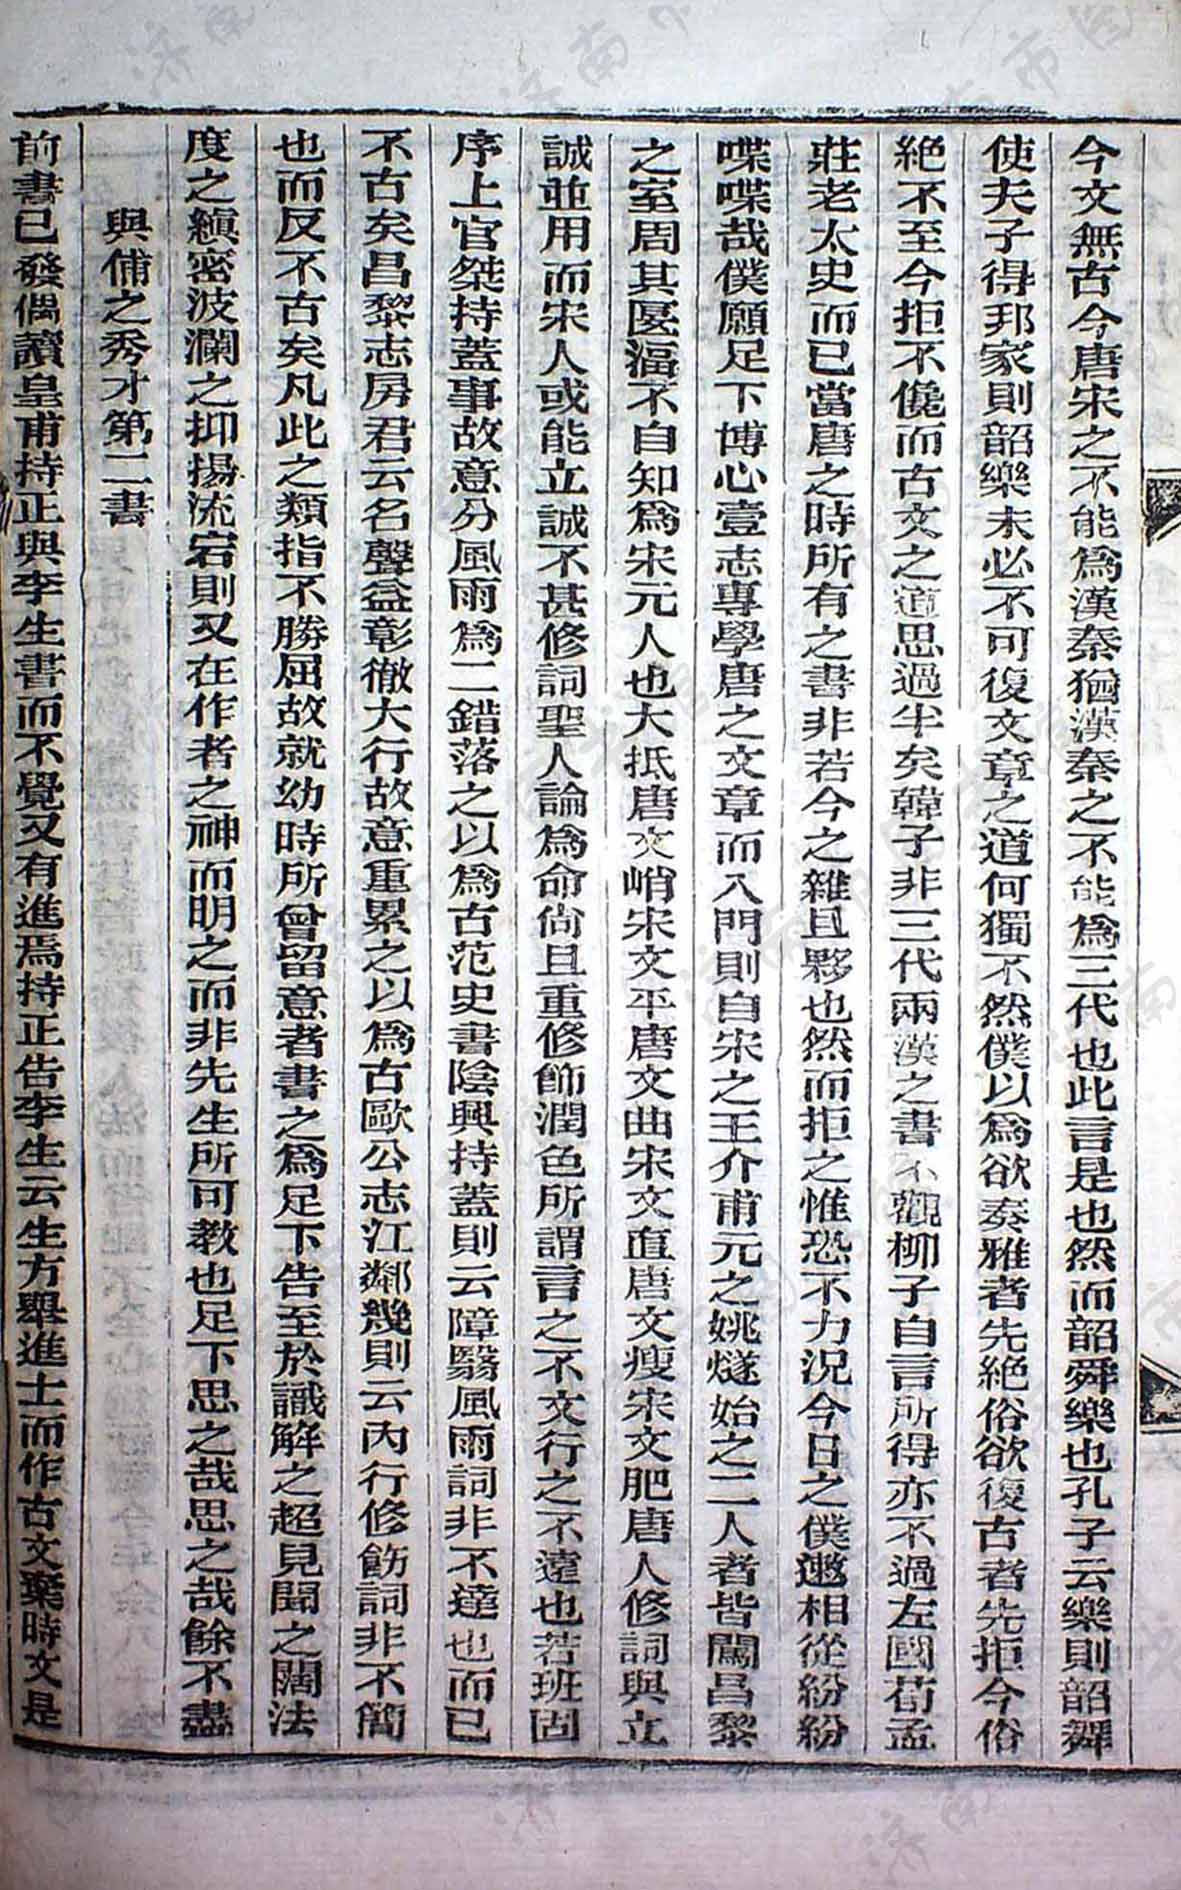 今文無古今唐宋之不能爲漢秦猶漢秦之不能爲三代也此言是也然而韶舜樂也孔子云樂則韶舞
使夫子得邦家則韶樂未必不可復文章之道何獨不然僕以爲欲奏雅者先絶俗欲復古者先拒今俗
絶不至今拒不儳而古文之道思過半矣韓子非三代兩漢之書不觀柳子自言所得亦不過左國荀孟
莊老太史而已當唐之時所有之書非若今之雜且夥也然而拒之惟恐不力况今日之僕遬相從紛紛
喋喋哉僕願足下博心壹志專學唐之文章而入門則自宋之王介甫元之姚燧始之二人者皆闖昌黎
之室周其匽湢不自知爲宋元人也大抵唐文峭宋文平唐文曲宋文直唐文瘦宋文肥唐人修詞與立
誠並用而宋人或能立誠不甚修詞聖人論爲命尚且重修飾潤色所謂言之不文行之不遠也若班固
序上官桀持蓋事故意分風雨爲二錯落之以爲古范史書陰興持蓋則云障翳風雨詞非不達也而已
不古矣昌黎志房君云名聲益彰徹大行故意重累之以爲古歐公志江鄰幾則云內行修飭詞非不簡
也而反不古矣凡此之類指不勝屈故就幼時所曾留意者書之爲足下告至於識解之超見聞之闊法
度之縝密波瀾之抑揚流宕則又在作者之神而明之而非先生所可教也足下思之哉思之哉餘不盡
與俌之秀才第二書
前書已發偶讀皇甫持正與李生書而不覺又有進焉持正告李生云生方舉進士而作古文棄時文是